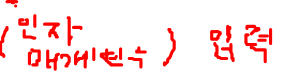 (인자
매개변수) 입력